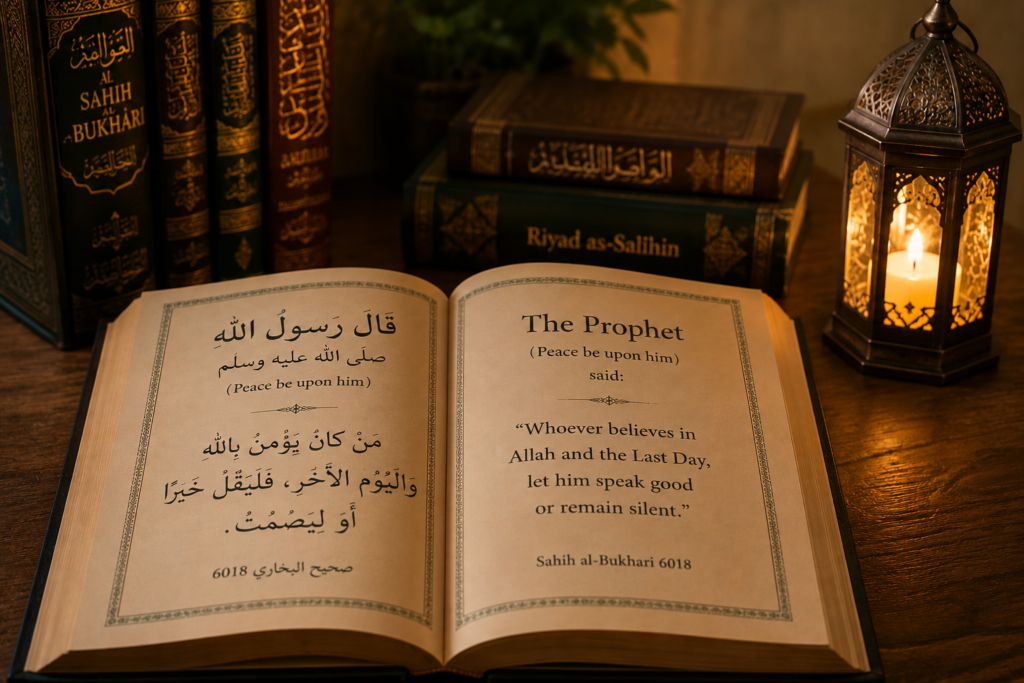 AL
SAHIH
AL
BUKHARI
Riyad as-Salihin
قَالَ رَسولُ اللهِ
صلَى الله عليه وسلم
(Peace be upon him)
مَنْ كانَ يَؤْمنُ بِاللهِ
وَالَيُوْم الآَخَرِ، فَلَيَقْلُ خَيَرًا
أَوَ لِيَصُمُتُ.
صحيح البخاري 6018
The Prophet
(Peace be upon him)
said:
“Whoever believes in
Allah and the Last Day,
let him speak good
or remain silent.”
Sahih al-Bukhari 6018